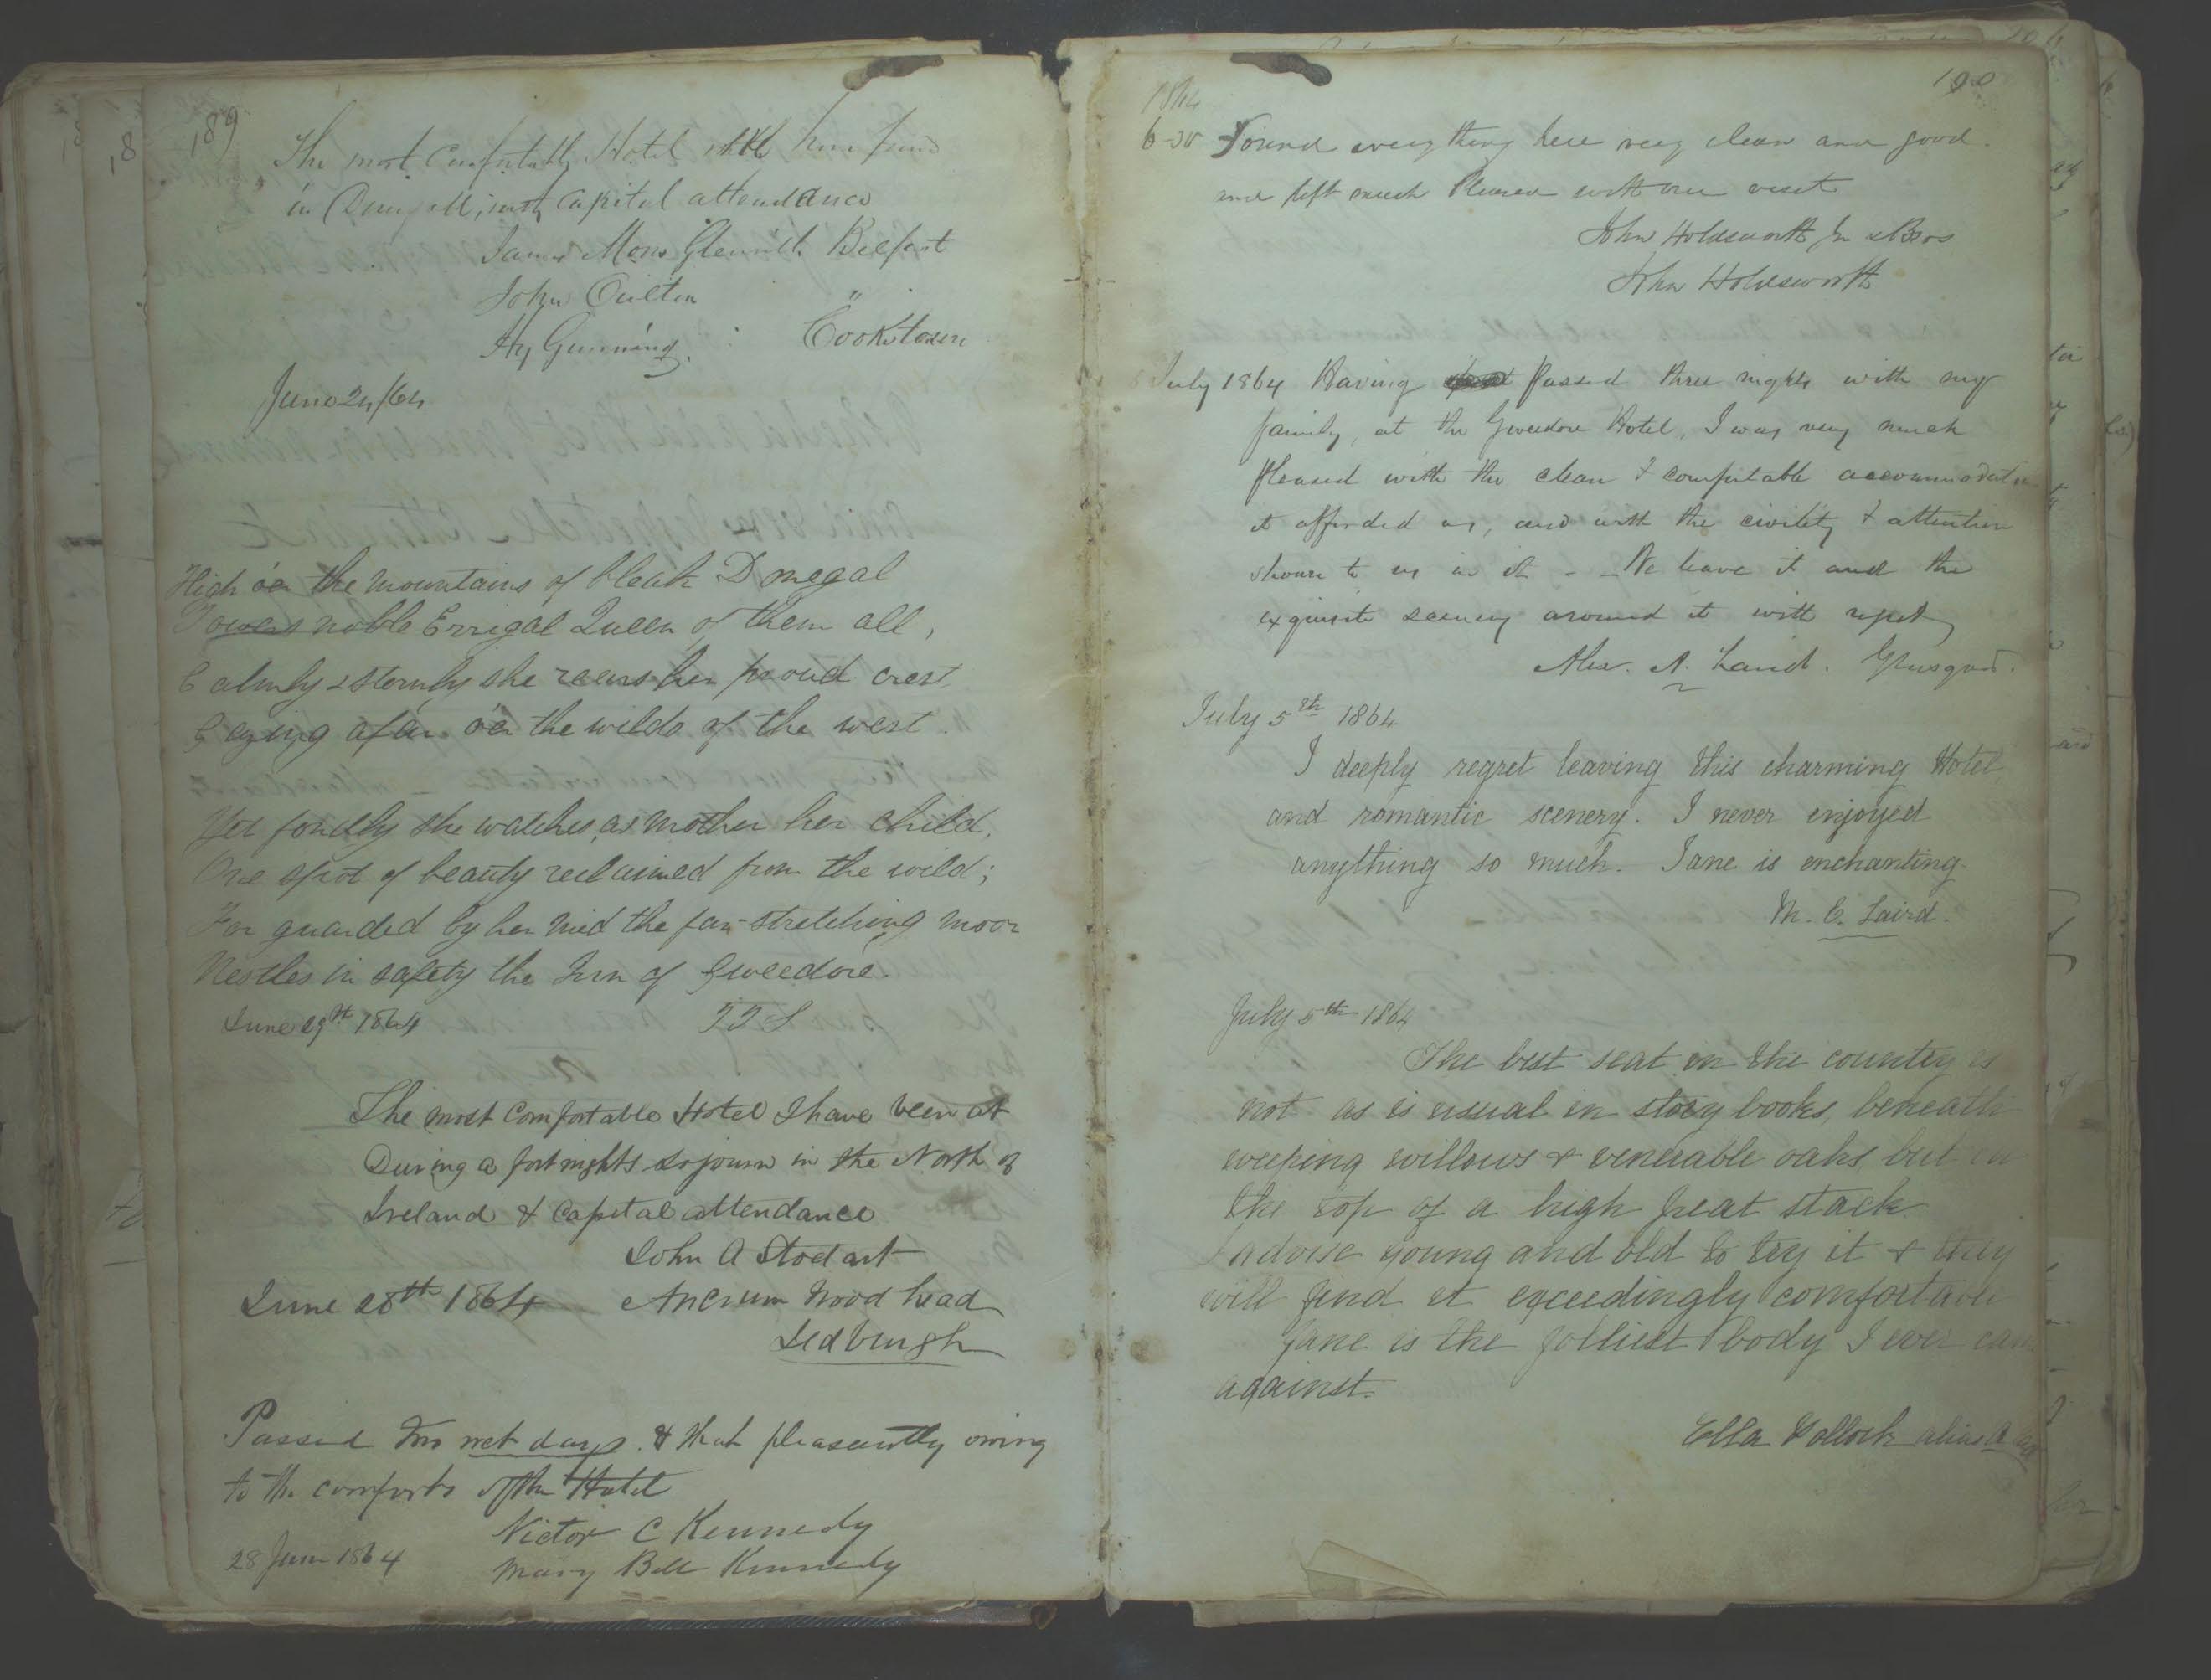 189
The most Comfortable Hotel we have found
in Donegall, with Capital attendance
James Belfast
John "
Hy Gunning : Cookstown
June 24/64
High o'er the mountains of bleak Donegal
Towers noble Errigal Queen of them all,
Calmly & sternly she rears her proud crest
Gazing afar o'er the wilds of the west.
Yet fondly she watches, as mother her child,
One spot of beauty reclaimed from the wild;
For guarded by her mid the far-stretching moor
Nestles in safety the Inn of Gweedore.
June 29th 1864
The most Comfortable Hotel I have been at
During a fortnights Sojourn in the North of
Ireland & Capital attendance
John A Stodart
June 28th 1864 Ancrum Woodhead
Jedburgh
Passed two wet days. & that pleasantly owing
to the comforts of the Hotel
28 June 1864 Victor C Kennedy
Mary Bell Kennedy
190
1864
6-30 Found everything here very clean and good.
and left much Pleased with our visit
John Holdsworth Jn & Bros
John Holdsworth
July 1864 Having passed three nights with my
family, at the Gweedore Hotel, I was very much
pleased with the clean & comfortable accommodation
it afforded us, and with the civility & attention
shown to us in it - - We leave it and the
exquisite scenery around it with regret
Alex. A. Laird. Glasgow.
July 5th 1864
I deeply regret leaving this charming Hotel,
and romantic scenery. I never enjoyed
anything so much. Jane is enchanting.
M. E. Laird.
July 5th 1864
The best seat in the country is
not as is usual in story books, beneath
weeping willows & venerable oaks, but on
the top of a high peat stack
I advise young and old to try it & they
will find it exceedingly comfortable
Jane is the jolliest body I ever came
against.
Ella Pollock alias